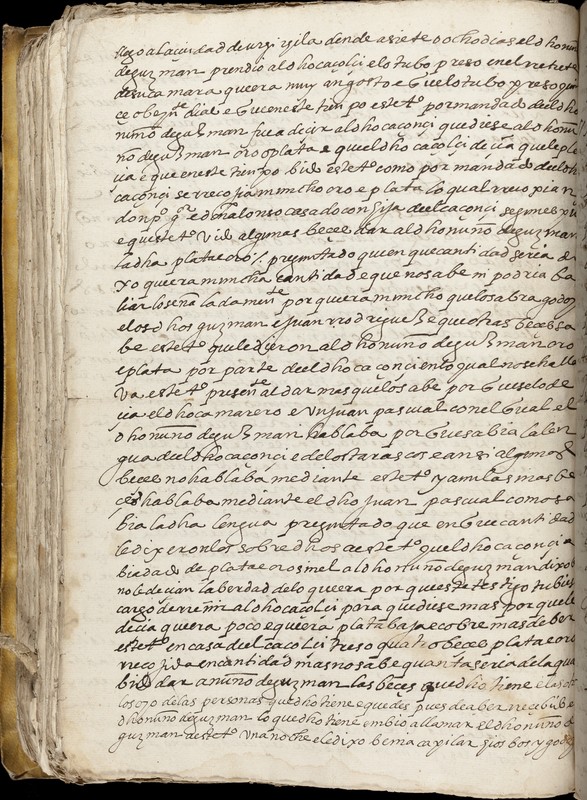 llego a la ciudad de uzizila dende a siete o ocho dias el dho nuño
de guzman prendio al dho cacolçi e lo tubo preso en el retrete
de su camara que era muy angosto e que lo tubo preso quin
ce o beynte dias e que en este tienpo este tº por mandado del dho
nuño de guzman fue a dezir al dho caconçi que diese al dho nu
ño de guzman oro o plata e que el dho cacolçi dezia que le ple
zia e que en este tienpo bido este tº como por mandado del dho
caconçi se rrecojia mucho oro e plata lo qual rrecojian
don pº e don alonso casado con hija del caconçi
e queste tº vido algunas beces dar al dho nuño de guzman
la dha plata e oro preguntado que en que cantidad seria di
xo que era mucha cantidad e que no sabe ni podria
señaladamente por que era mucho que lo sabra godoy
e los dhos guzman e juan rrodriguez e que otras beces sa
be este tº que le dieron al dho nuño de guzman oro
e plata por parte del dho caconci en lo qual no se hallo
este tº presente al dar mas que lo sabe por que se lo de
zia el dho camarero e un juan pascual con el qual el
dho nuño de guzman hablaba por que sabia la len
gua del dho caconçi e de los tarascos e ansi algunas
beces no hablaba mediante este tº y a mas be
ces hablaba mediante el dho juan pascual como sa
bia la dha lengua preguntado que en que cantidad
le dixeron los sobredhos a este tº quel dho caconçi a
bia dado de plata e oro sin el al dho nuño de guzman dixo
no le decian la berdad de lo que era por que este testigo tubiese
cargo de rreñir al dho cacolçi para que diese mas por que le
decia que era poco e que era plata baja e cobre mas de ber
este tº en casa del cacolçi tres o quatro beces plata e oro
rrecojida en cantidad mas no sabe quanta seria de la qual
bido dar a nuño de guzman las beces que dho tiene
las personas que dho tiene e que despues de aber rrecibido
dho nuño de guzman lo que dho tiene enbio a llamar el dho nuño de
guzman a este tº una noche e le dixo